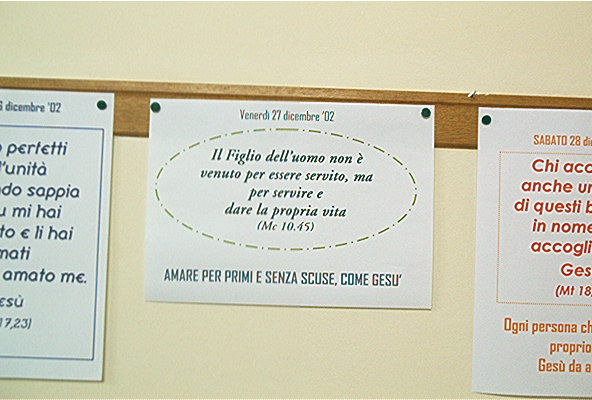 6 dicembre '02
perfetti
l'unità
ndo sappia
u mi hai
to e li hai
mati
amato me.
esù
17,23)
Venerdì 27 dicembre '02
Il Figlio dell'uomo non è
venuto per essere servito, ma
per servire e
dare la propria vita
(Mc 10,45)
AMARE PER PRIMI E SENZA SCUSE, COME GESU'
SABATO 28 di
Chi acc
anche un
di questi b
in nome
accogli
Ges
(Mt 18,
Ogni persona ch
proprio
Gesù da a